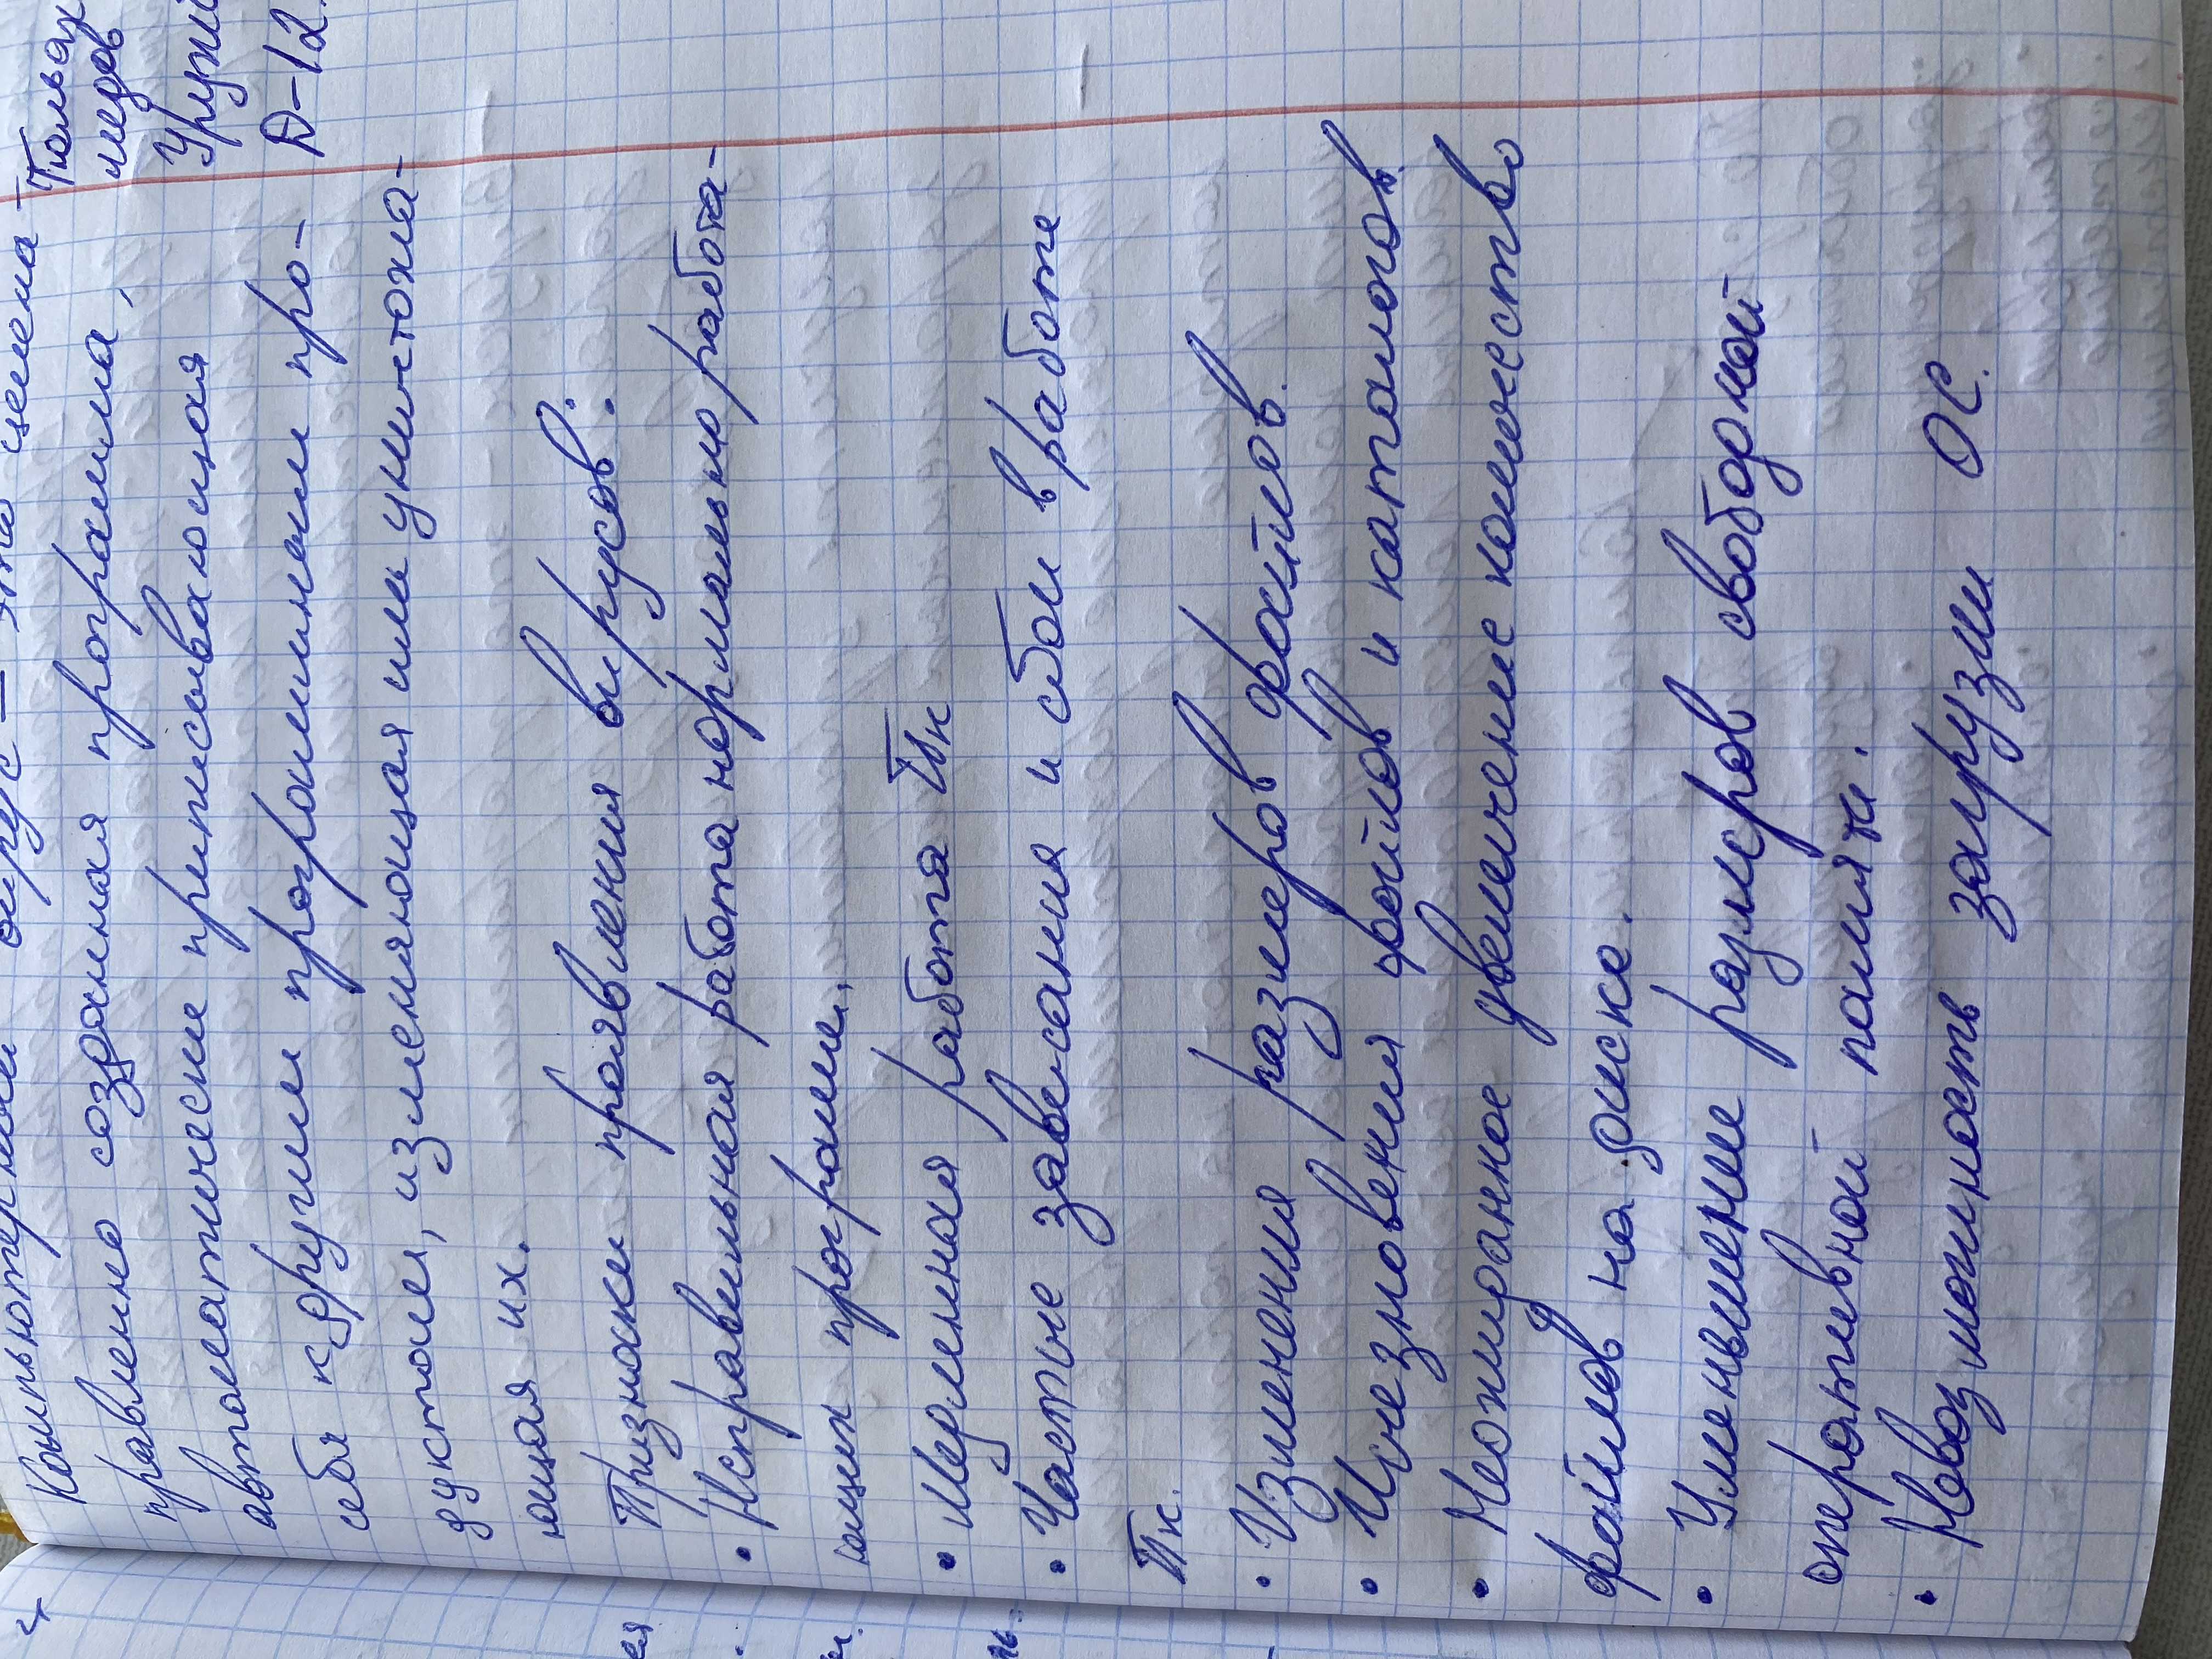 Компьютерный вирус – это целена-
правленно созданная программа,
автоматически приписывающая
себя к другим программным про-
дуктам, изменяющая или уничтожа-
ющая их.
Признаки проявления вирусов:
• Неправильная работа нормально работа-
ющих програме.
• Медленная работа Пк
• Частые зависания и сбои в работе
Пк.
• Изменения размеров файлов.
• Исчезновения файлов и каталогов.
• Неожиданное увеличение количество
файлов на диске.
• Уменьшение размеров свободной
оперативной памяти.
• Невозможность загрузки ОС.
медов
Д-12